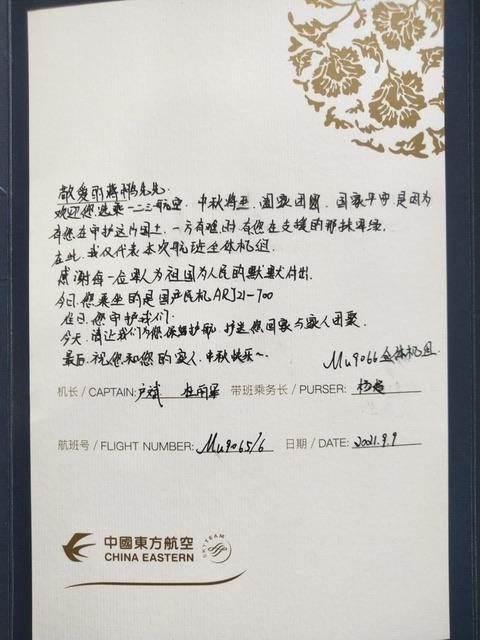 敬爱的蒋鹏先生.
欢迎您选乘一二三航空. 中秋将至 阖家团圆 国家平安 是因为
有您在守护这片国土. 一方有难时 有您在支援的那抹军绿.
在此, 我仅代表本次航班全体机组.
感谢每一位军人为祖国为人民的默默付出.
今日,您乘坐的是国产民机ARJ21-700
往日,您守护我们.
今天,请让我们为您保驾护航,护送您回家与家人团聚.
最后,祝您和您的家人,中秋快乐~
Mu9066全体机组.
机长 / CAPTAIN: 卢斌 杜雨星 带班乘务长 / PURSER: 杨超
航班号 / FLIGHT NUMBER: Mu9065/6 日期 / DATE: 2021.9.9
中國東方航空
CHINA EASTERN
SKYTEAM